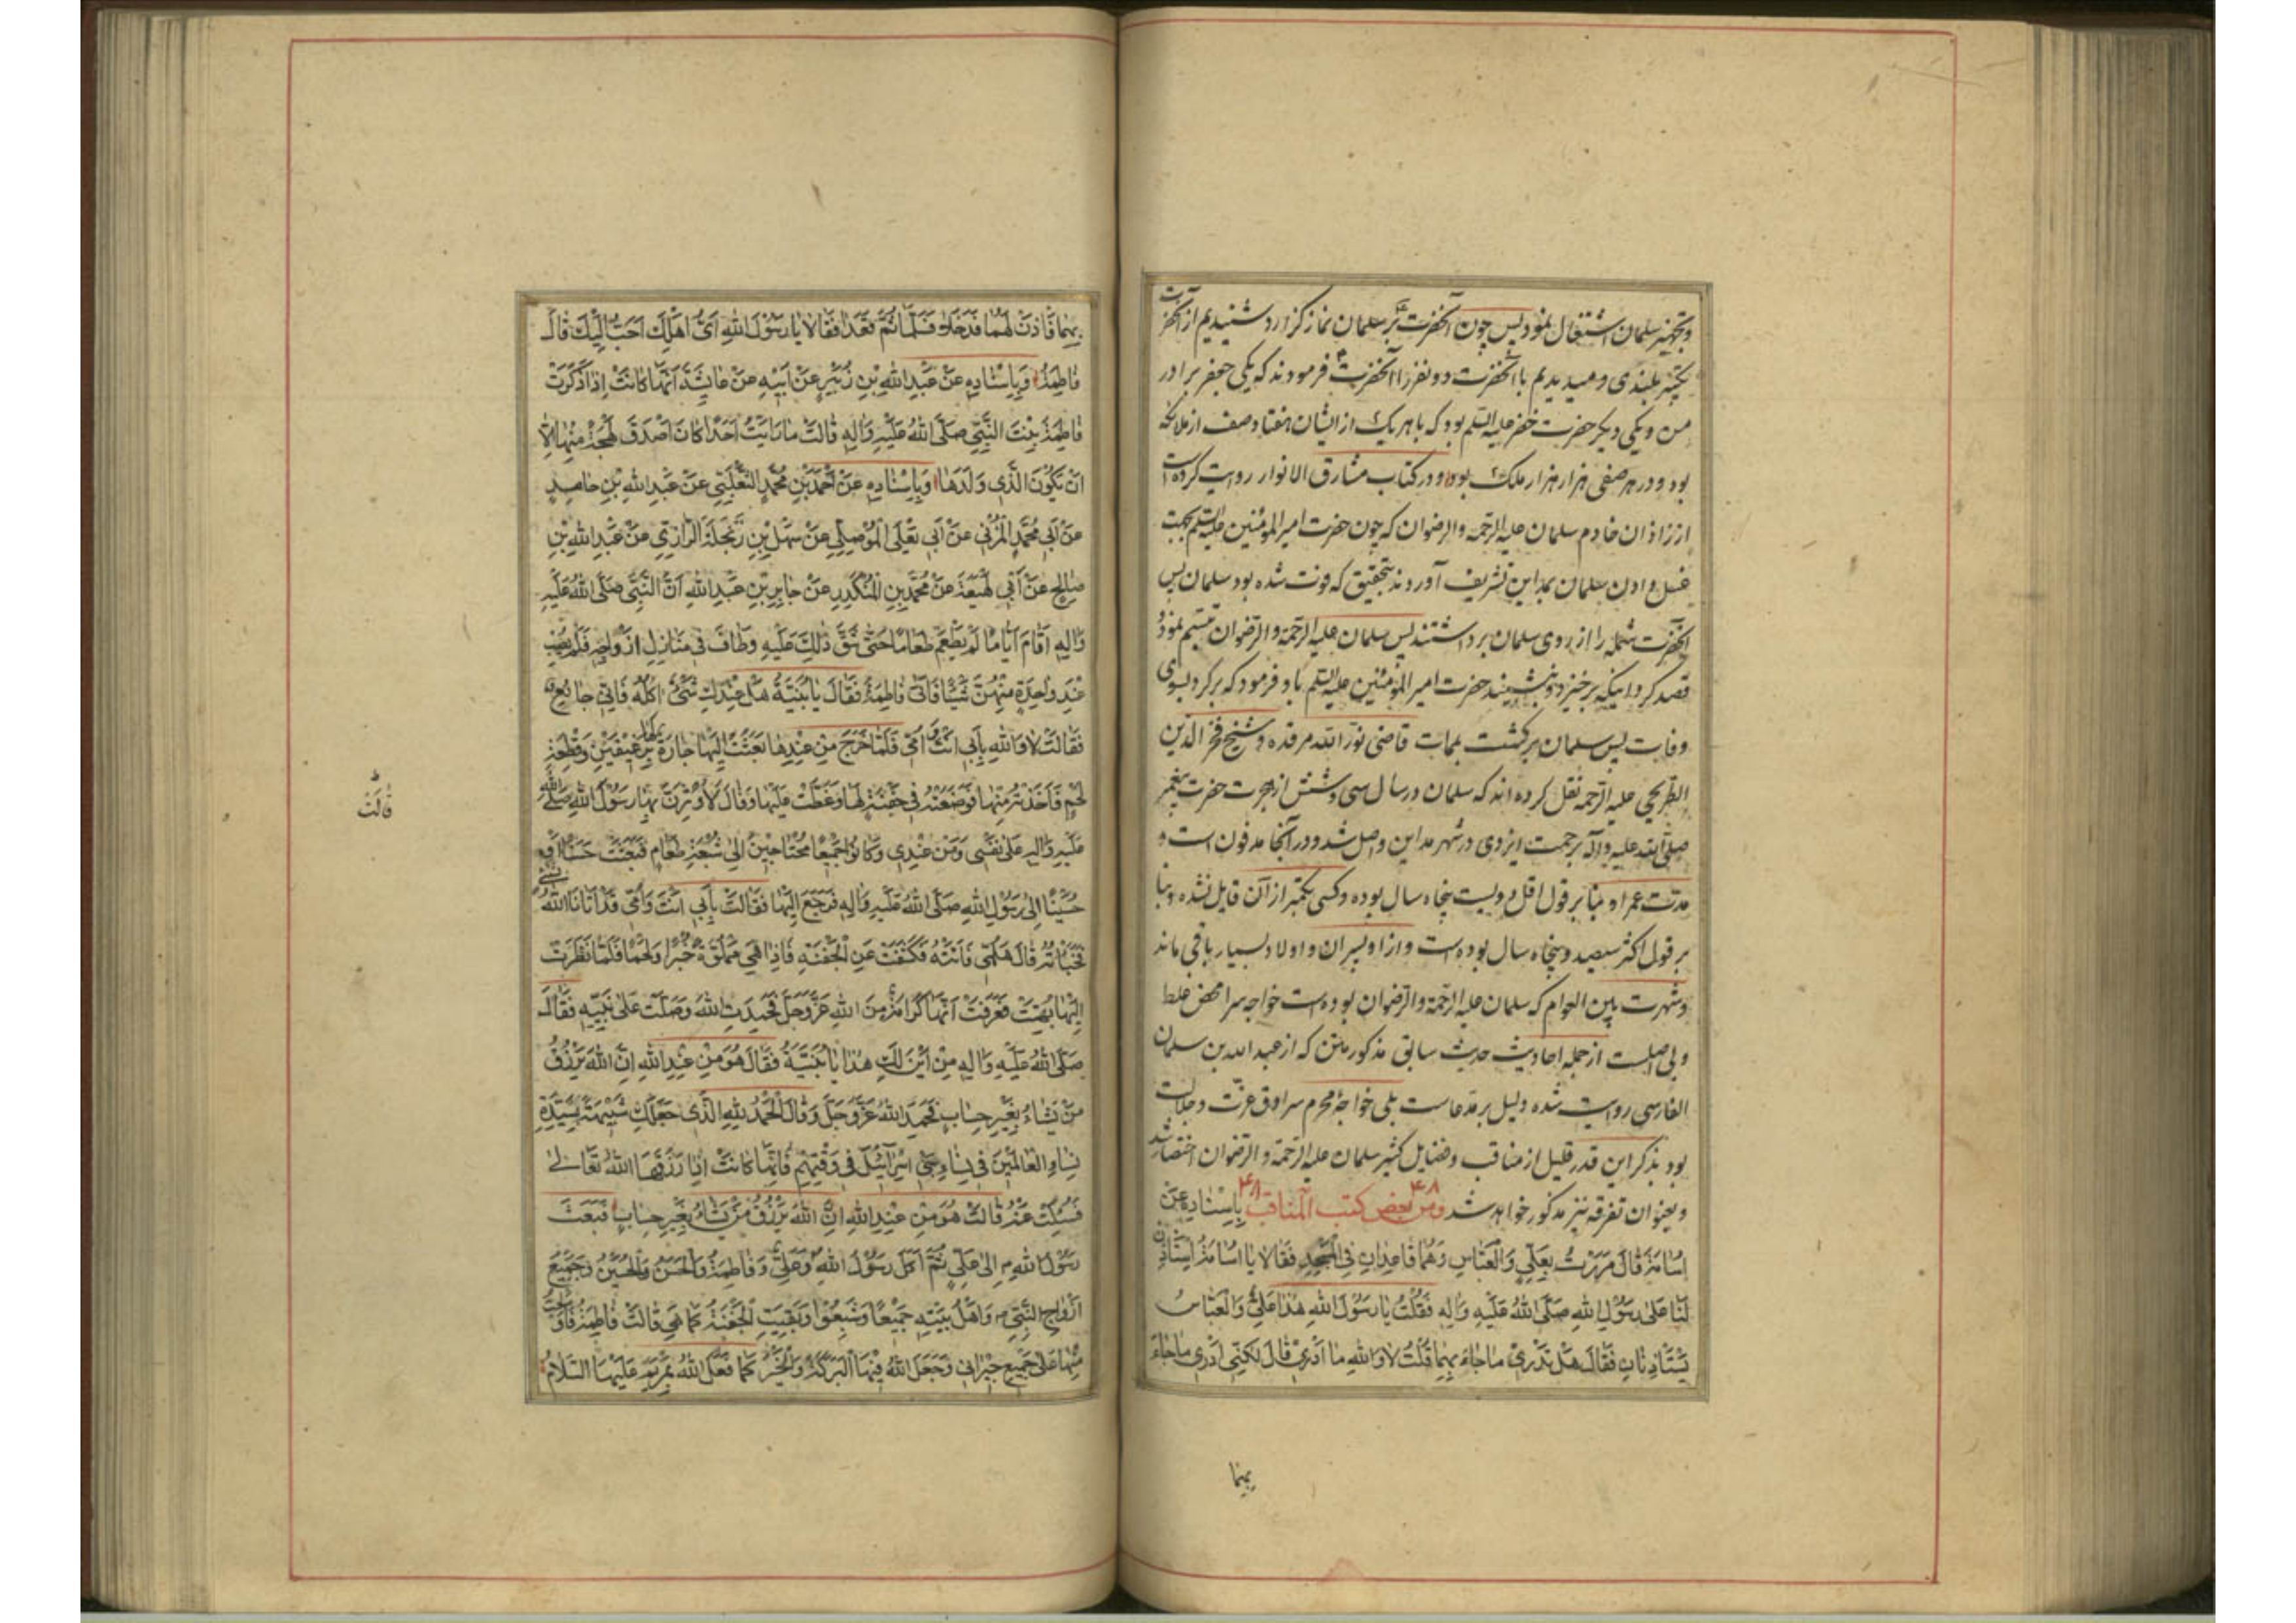 وتجهیز سلمان اشتغال نمود پس چون آنحضرت بر سلمان نماز گزارد شنیدیم از آنحضرت
تکبیر بلندی و میدیدیم با آنحضرت دو نفر را آنحضرت فرمودند که یکی جعفر برادر
من و یکی دیگر حضرت خضر علیه السلم بود که با هر یک از ایشان هفتاد صف از ملائکه
بود و در هر صفی هزار هزار ملک بود و در کتاب مشارق الانوار روایت کرده است
از زاذان خادم سلمان علیه الرحمة والرضوان که چون حضرت امیرالمؤمنین علیه السلم بجهت
غسل دادن سلمان بمداین تشریف آوردند بتحقیق که فوت شده بود سلمان پس
آنحضرت شمله را از روی سلمان برداشتند پس سلمان علیه الرحمة والرضوان تبسم نمود و
قصد کرد اینکه برخیزد و بنشیند حضرت امیرالمؤمنین علیه السلم باو فرمود که برگرد بسوی
وفات پس سلمان برگشت بممات قاضی نورالله مرقده و شیخ فخرالدین
الطریحی علیه الرحمه نقل کرده اند که سلمان در سال سی و شش از هجرت حضرت پیغمبر
صلی الله علیه وآله برحمت ایزدی در شهر مداین واصل شد و در آنجا مدفون است و
مدت عمر او بنا بر قول اقل دویست پنجاه سال بوده و کسی بکمتر از آن قایل نشده و بنا
بر قول اکثر سیصد و پنجاه سال بوده است و از او پسران و اولاد بسیار باقی ماند
وشهرت بین العوام که سلمان علیه الرحمة والرضوان بوده است خواجه سرا محض غلط
و بی اصلست از جمله احادیث حدیث سابق مذکور متن که از عبدالله بن سلمان
الفارسی روایت شده دلیل بر مدعاست بلی خواجهٔ محرم سرادق عزت وجلالت
بود بذکر این قدر قلیل از مناقب و فضایل کثیر سلمان علیه الرحمة والرضوان اختصار شد
وبعنوان تفرقه نیز مذکور خواهد شد ۴۸ ومن بعض کتب المناقب ۴۸ بِاِسْنَادِهِ عَنْ
اُسَامَةَ قَالَ مَرَرْتُ بِعَلِيٍّ وَالْعَبَّاسِ وَهُمَا قَاعِدَانِ فِي الْمَسْجِدِ فَقَالَا يَا اُسَامَةُ اسْتَأْذِنْ
لَنَا عَلٰى رَسُوْلِ اللهِ صَلَّى اللهُ عَلَيْهِ وَاٰلِهِ فَقُلْتُ يَا رَسُوْلَ اللهِ هٰذَا عَلِيٌّ وَالْعَبَّاسُ
يَسْتَأْذِنَانِ فَقَالَ هَلْ تَدْرِيْ مَا جَاءَ بِهِمَا قُلْتُ لَا وَاللهِ مَا اَدْرِيْ قَالَ لٰكِنِّيْ اَدْرِيْ مَا جَاءَ
بهما
بِهِمَا فَأْذَنْ لَهُمَا فَدَخَلَا فَسَلَّمَا ثُمَّ قَعَدَا فَقَالَا يَا رَسُوْلَ اللهِ اَيُّ اَهْلِكَ اَحَبُّ اِلَيْكَ قَالَ
فَاطِمَةُ وَبِاِسْنَادِهِ عَنْ عَبْدِ اللهِ بْنِ زُبَيْرٍ عَنْ اَبِيْهِ عَنْ عَائِشَةَ اَنَّهَا كَانَتْ اِذَا ذَكَرَتْ
فَاطِمَةَ بِنْتَ النَّبِيِّ صَلَّى اللهُ عَلَيْهِ وَاٰلِهِ قَالَتْ مَا رَاَيْتُ اَحَدًا كَانَ اَصْدَقَ لَهْجَةً مِنْهَا اِلَّا
اَنْ يَكُوْنَ الَّذِيْ وَلَدَهَا وَبِاِسْنَادِهِ عَنْ اَحْمَدَ بْنِ مُحَمَّدٍ الثَّعْلَبِيِّ عَنْ عَبْدِ اللهِ بْنِ حَامِدٍ
عَنْ اَبِيْ مُحَمَّدٍ الْمُزَنِيِّ عَنْ اَبِيْ يَعْلَى الْمُوْصِلِيِّ عَنْ سَهْلِ بْنِ زَنْجَلَةَ الرَّازِيِّ عَنْ عَبْدِ اللهِ بْنِ
صَالِحٍ عَنْ اَبِيْ لَهِيْعَةَ عَنْ مُحَمَّدِ بْنِ الْمُنْكَدِرِ عَنْ جَابِرِ بْنِ عَبْدِ اللهِ اَنَّ النَّبِيَّ صَلَّى اللهُ عَلَيْهِ
وَاٰلِهِ اَقَامَ اَيَّامًا لَمْ يَطْعَمْ طَعَامًا حَتّٰى شَقَّ ذٰلِكَ عَلَيْهِ وَطَافَ فِيْ مَنَازِلِ اَزْوَاجِهِ فَلَمْ يُصِبْ
عِنْدَ وَاحِدَةٍ مِنْهُنَّ شَيْئًا فَاَتٰى فَاطِمَةَ فَقَالَ يَا بُنَيَّةُ هَلْ عِنْدَكِ شَيْءٌ اٰكُلُهُ فَاِنِّيْ جَائِعٌ
فَقَالَتْ لَا وَاللهِ بِاَبِيْ اَنْتَ وَاُمِّيْ فَلَمَّا خَرَجَ مِنْ عِنْدِهَا بَعَثَتْ اِلَيْهَا جَارَةٌ لَهَا بِرَغِيْفَيْنِ وَقِطْعَةِ
لَحْمٍ فَاَخَذَتْهُ مِنْهَا فَوَضَعَتْهُ فِيْ جَفْنَةٍ لَهَا وَغَطَّتْ عَلَيْهَا وَقَالَ لَاُوْثِرَنَّ بِهَا رَسُوْلَ اللهِ صَلَّى اللهُ
قَالَتْ
عَلَيْهِ وَاٰلِهِ عَلٰى نَفْسِيْ وَمَنْ عِنْدِيْ وَكَانُوْا جَمِيْعًا مُحْتَاجِيْنَ اِلٰى شُبْعَةِ طَعَامٍ فَبَعَثَتْ حَسَنًا اَوْ
حُسَيْنًا اِلٰى رَسُوْلِ اللهِ صَلَّى اللهُ عَلَيْهِ وَاٰلِهِ فَرَجَعَ اِلَيْهَا فَقَالَتْ بِاَبِيْ اَنْتَ وَاُمِّيْ قَدْ اَتَانَا اللهُ بِشَيْءٍ
فَخَبَأْتُهُ قَالَ هَلُمِّيْ فَاَتَتْهُ فَكَشَفَتْ عَنِ الْجَفْنَةِ فَاِذَا هِيَ مَمْلُوَّةٌ خُبْزًا وَلَحْمًا فَلَمَّا نَظَرَتْ
اِلَيْهَا بُهِتَتْ فَعَرَفَتْ اَنَّهَا كَرَامَةٌ مِنَ اللهِ عَزَّ وَجَلَّ فَحَمِدَتِ اللهَ وَصَلَّتْ عَلٰى نَبِيِّهِ فَقَالَ
صَلَّى اللهُ عَلَيْهِ وَاٰلِهِ مِنْ اَيْنَ لَكِ هٰذَا يَا بُنَيَّةُ فَقَالَ هُوَ مِنْ عِنْدِ اللهِ اِنَّ اللهَ يَرْزُقُ
مَنْ يَشَاءُ بِغَيْرِ حِسَابٍ فَحَمِدَ اللهَ عَزَّ وَجَلَّ وَقَالَ الْحَمْدُ لِلّٰهِ الَّذِيْ جَعَلَكِ شَبِيْهَةً بِسَيِّدَةِ
نِسَاءِ الْعَالَمِيْنَ فِيْ نِسَاءِ بَنِيْ اِسْرَائِيْلَ فِيْ وَقْتِهِمْ فَاِنَّهَا كَانَتْ اِذَا رَزَقَهَا اللهُ تَعَالٰى
فَسُئِلَتْ عَنْهُ قَالَتْ هُوَ مِنْ عِنْدِ اللهِ اِنَّ اللهَ يَرْزُقُ مَنْ يَشَاءُ بِغَيْرِ حِسَابٍ فَبَعَثَ
رَسُوْلُ اللهِ ص اِلٰى عَلِيٍّ ثُمَّ اَكَلَ رَسُوْلُ اللهِ وَعَلِيٌّ وَفَاطِمَةُ وَالْحَسَنُ وَالْحُسَيْنُ وَجَمِيْعُ
اَزْوَاجِ النَّبِيِّ ص وَاَهْلُ بَيْتِهِ جَمِيْعًا وَشَبِعُوْا وَبَقِيَتِ الْجَفْنَةُ كَمَا هِيَ قَالَتْ فَاطِمَةُ فَاَوْسَعْتُ
مِنْهَا عَلٰى جَمِيْعِ جِيْرَانِيْ وَجَعَلَ اللهُ فِيْهَا الْبَرَكَةَ وَالْخَيْرَ كَمَا فَعَلَ اللهُ بِمَرْيَمَ عَلَيْهَا السَّلَامُ